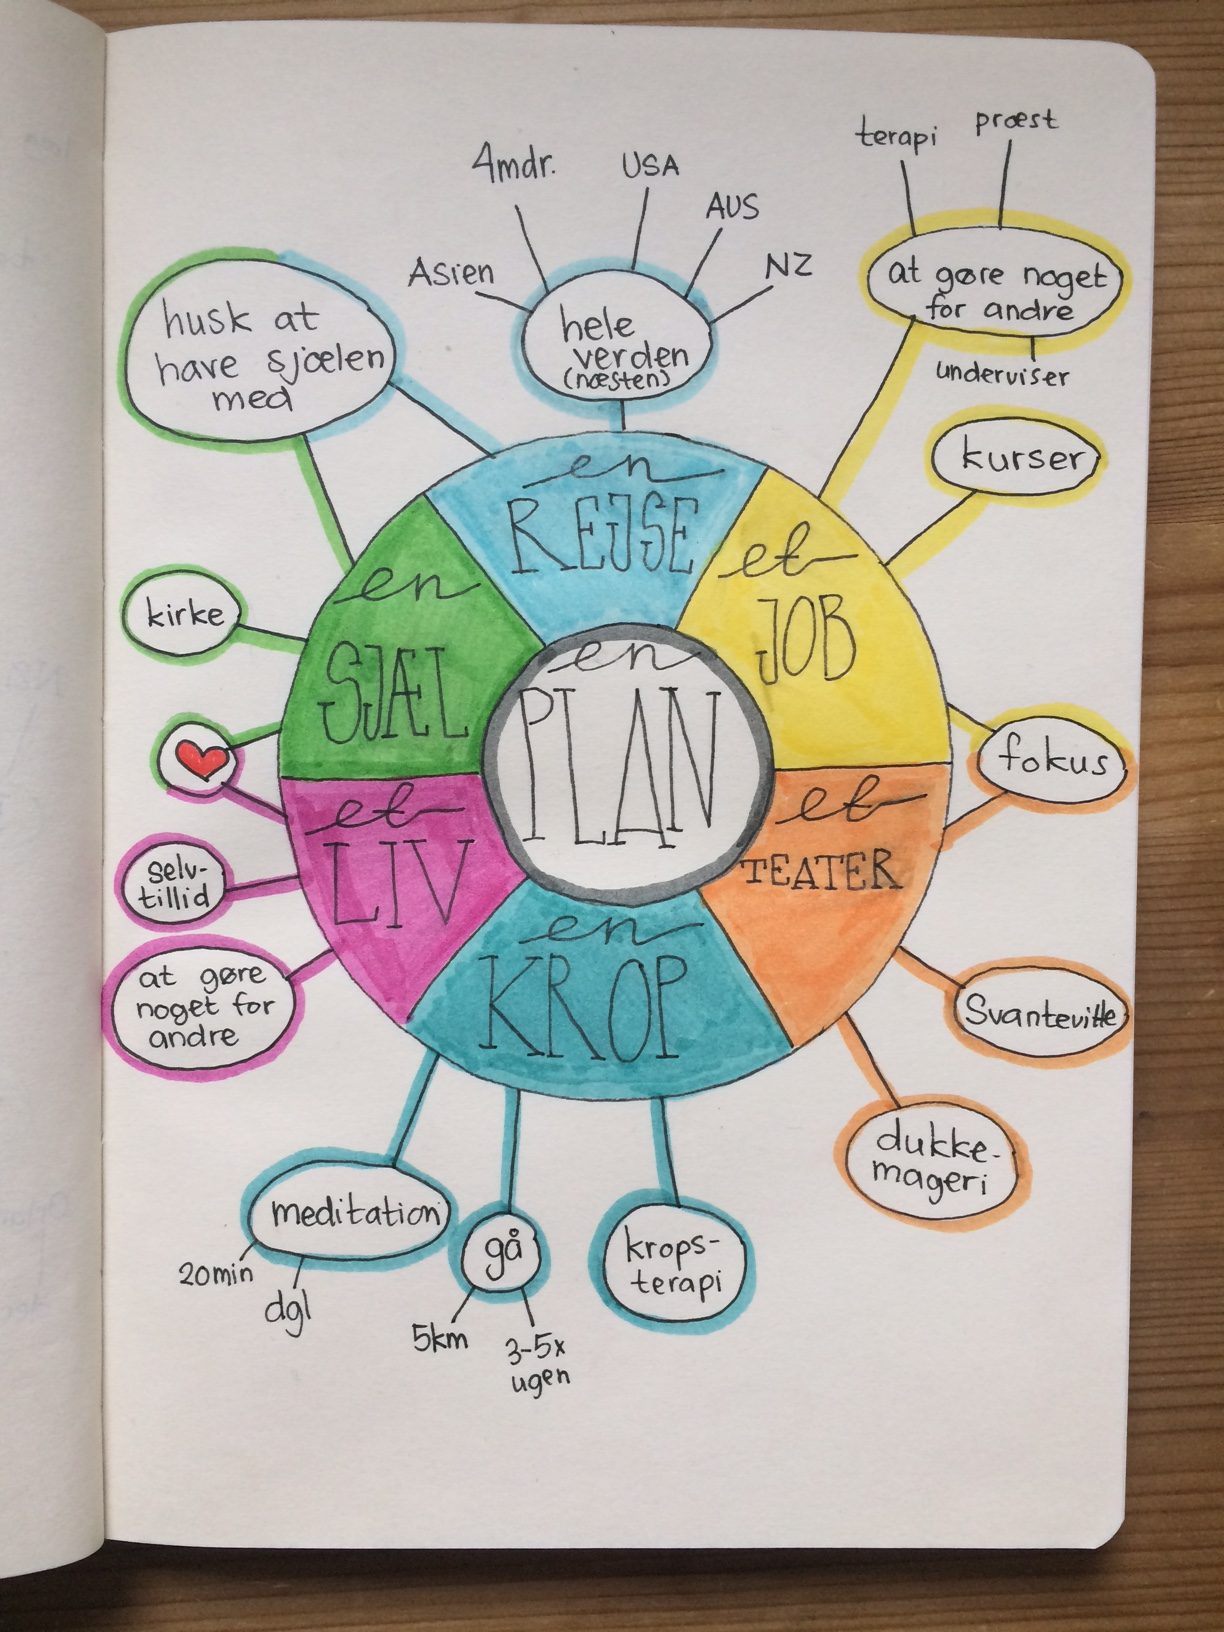 terapi
præst
4mdr.
USA
AUS
Asien
NZ
husk at
have sjælen
med
hele
verden
(næsten)
at gøre noget
for andre
underviser
kurser
en
REJSE
et
JOB
en
SJÆL
kirke
en
PLAN
fokus
et
LIV
et
TEATER
selv-
tillid
en
KROP
at gøre
noget for
andre
Svantevitte
dukke-
mageri
meditation
20min
dgl
gå
5km
3-5x
ugen
krops-
terapi